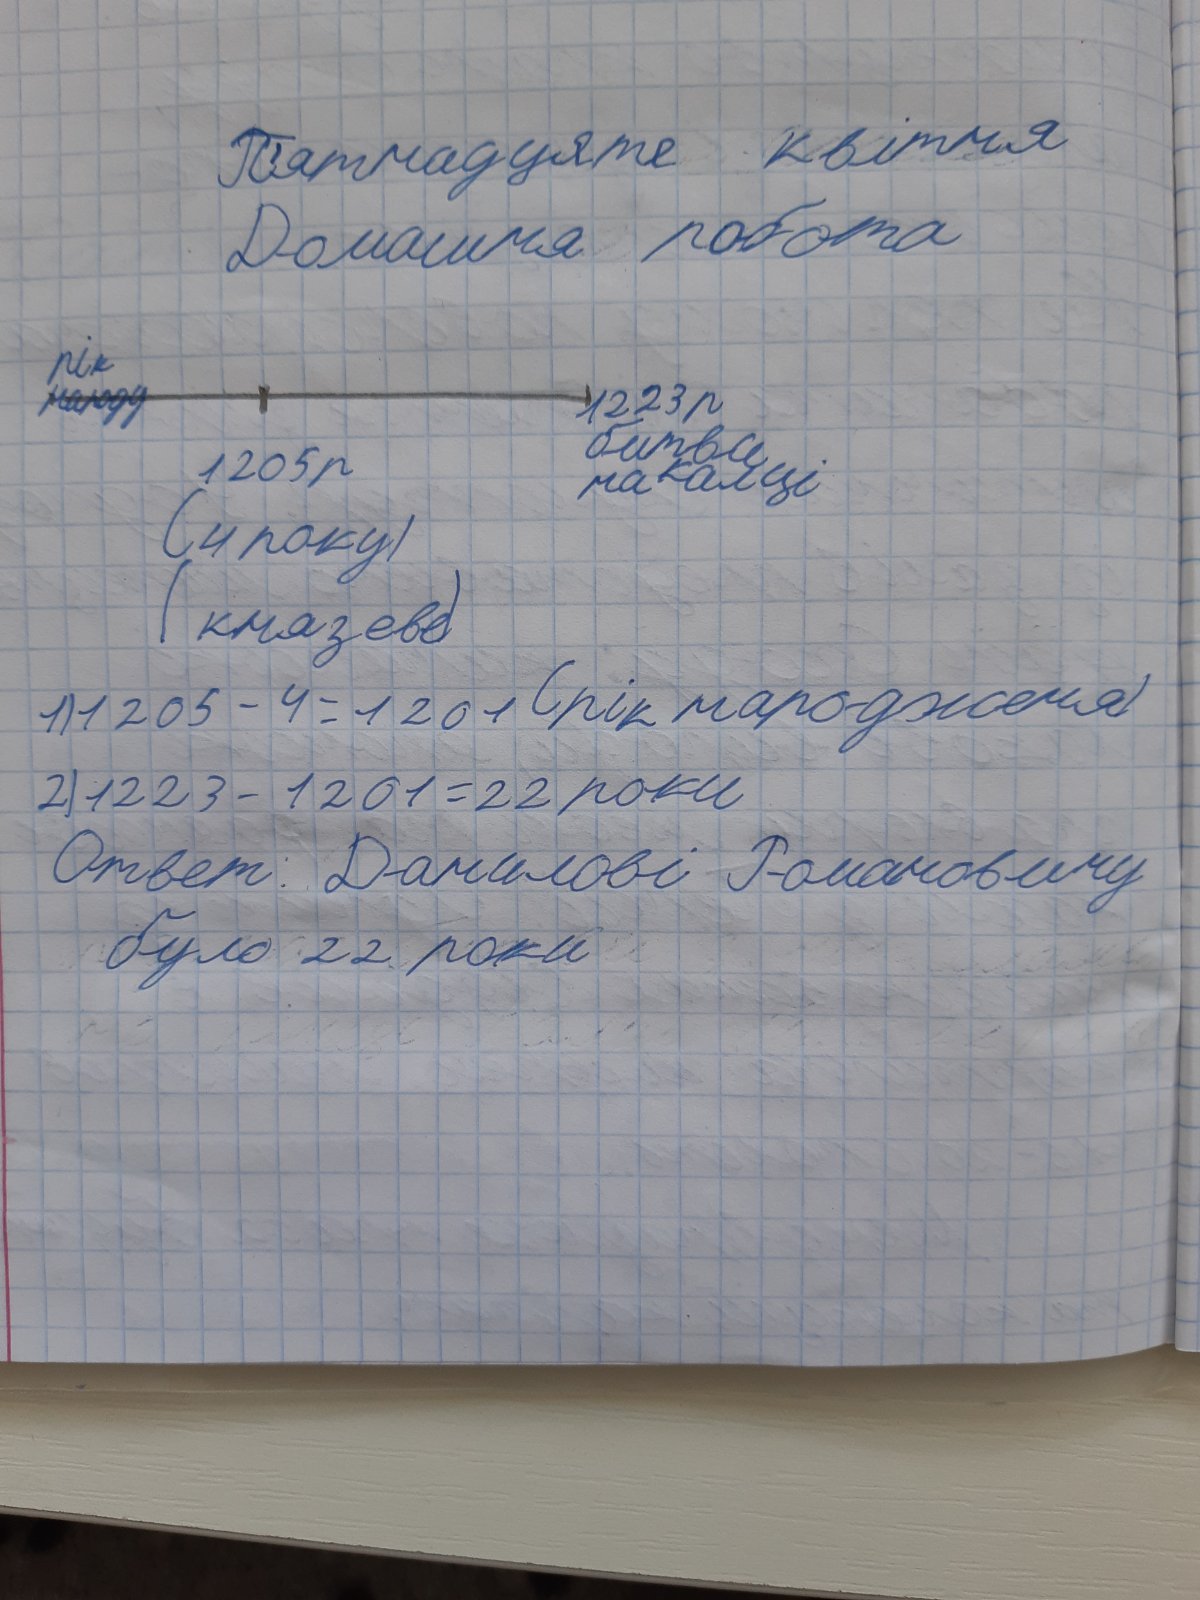 Пятнадцяте квітня
Домашня робота
рік
народу
1223р
битва
на калці
1205р
(4 року)
(князев)
1) 1205 - 4 = 1201 (рік народження)
2) 1223 - 1201 = 22 роки
Ответ: Данилові Романовичу
було 22 роки